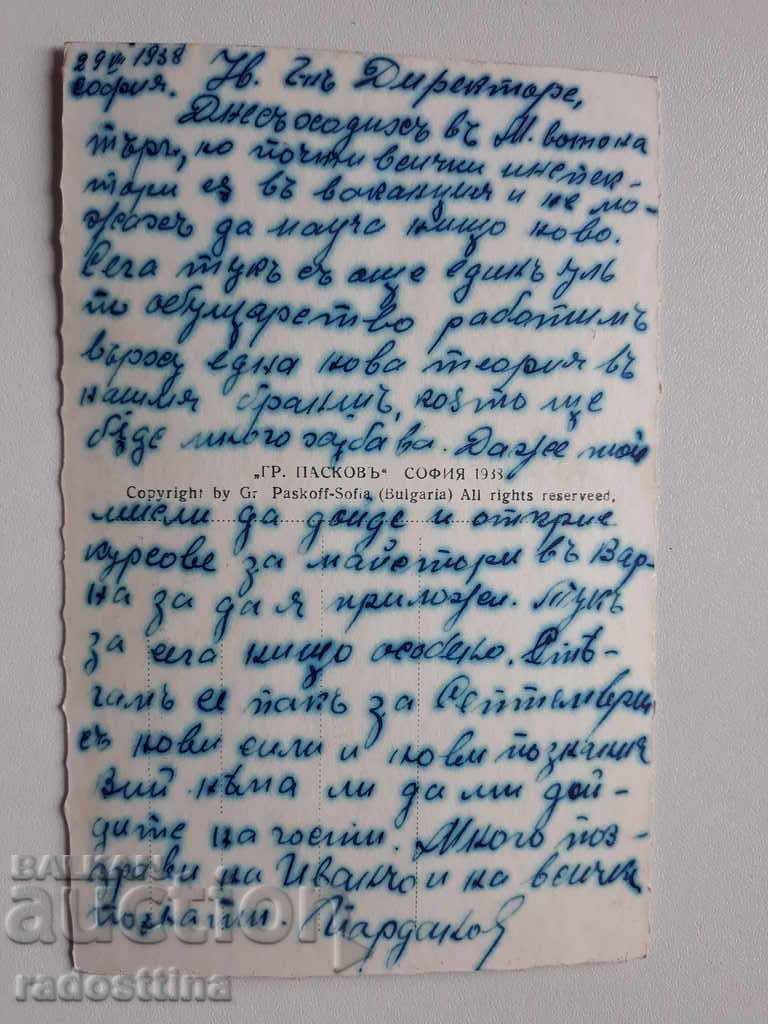 29 VII 1938
София. Ув. Г-нъ Директоре,
Днесъ ходихъ въ М. на
търг., но почти всички инспек-
тори сѫ въ ваканция и не мо-
жахъ да науча нищо ново.
Сега тукъ съ още единъ
по обущарство работимъ
върху една нова теория въ
нашия браншъ, която ще
бѫде много хубава. Даже той
„ГР. ПАСКОВЪ“ СОФИЯ 1938
Copyright by Gr. Paskoff-Sofia (Bulgaria) All rights reserveed.
мисли да дойде и открие
курсове за майстори въ Вар-
на за да я приложи. Тукъ
за сега нищо особено. Стѣ-
гамъ се пакъ за Септемврий
съ нови сили и нови познания
Вий нѣма ли да ми дой-
дите на гости. Много поз-
драви на Иванчо и на всички
познати.
BALKAN
auction
radosttina